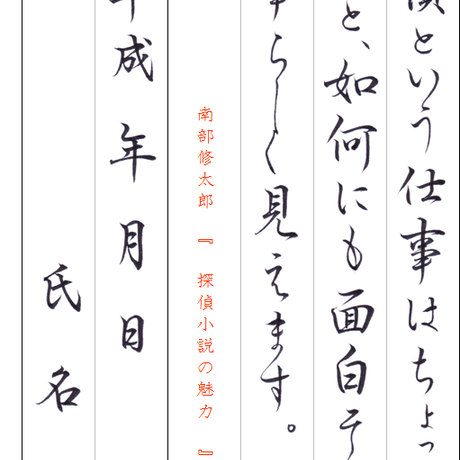 という仕事はちょっ
と、如何にも面白そ
らしく見えます。
南部修太郎 『 探偵小説の魅力 』
平成 年 月 日
氏名